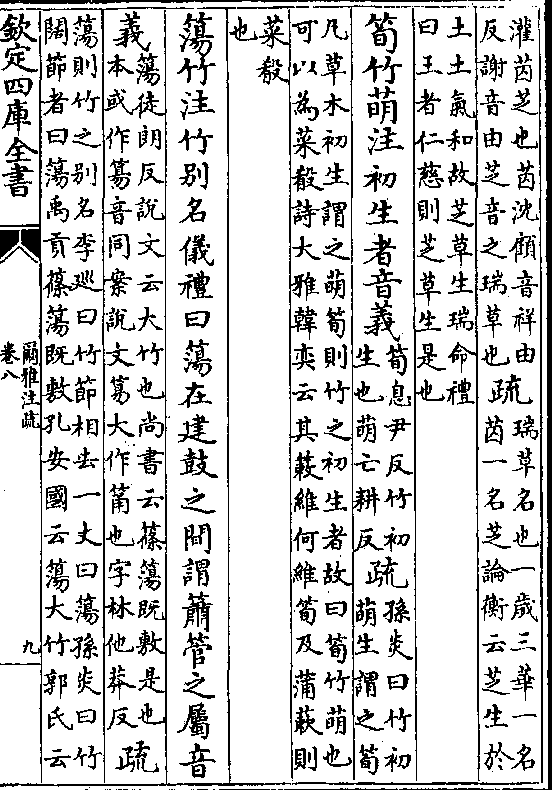 灌茵芝也茵沈顧音祥由
反謝音由芝音之瑞草也
疏
瑞草名也一歳三華一名
茵一名芝論衡云芝生於
土土氣和故芝草生瑞命禮
曰王者仁慈則芝草生是也
筍竹萌注初生者音義
筍息尹反竹初
生也萌亡耕反
疏
孫炎曰竹初
萌生謂之筍
凡草木初生謂之萌筍則竹之初生者故曰筍竹萌也
可以為菜殽詩大雅韓奕云其蔌維何維筍及蒲蔌則
菜殽
也
簜竹注竹别名儀禮曰簜在建鼓之間謂簫管之屬音
義
簜徒朗反說文云大竹也尚書云篠簜既敷是也
本或作音同案說文大作筩也字林他莽反
疏
簜則竹之别名李廵曰竹節相去一丈曰簜孫炎曰竹
闊節者曰簜禹貢篠簜既敷孔安國云簜大竹郭氏云
欽定四庫全書
爾雅注疏
卷八
九